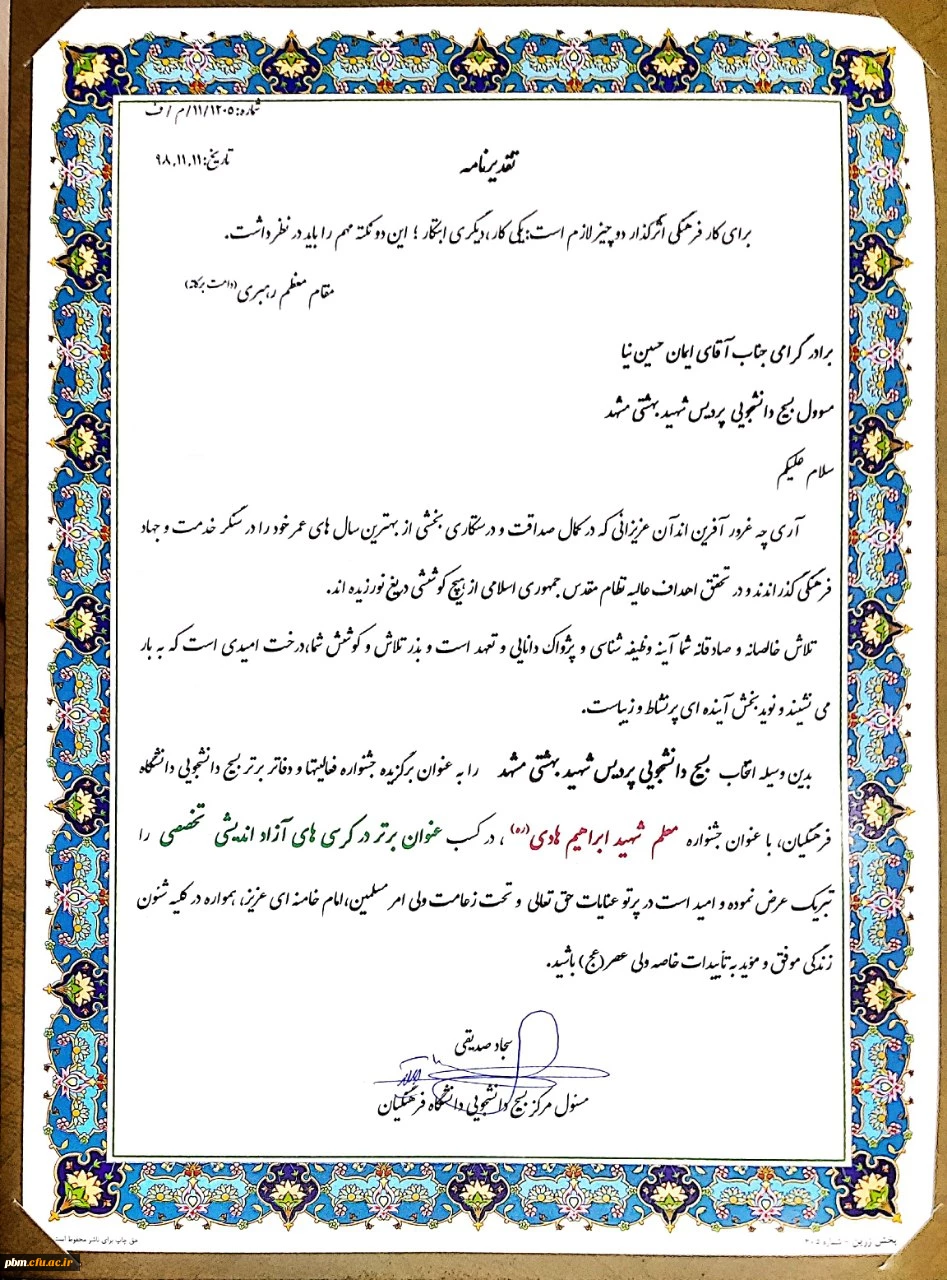 شماره: ۱۱/۱۲۰۵/م/ف
تاریخ: ۹۸.۱۱.۱۱
تقدیرنامه
برای کار فرهنگی اثرگذار دو چیز لازم است: یکی کار، دیگری ابتکار ؛ این دو نکته مهم را باید در نظر داشت.
مقام معظم رهبری (دامت برکاته)
برادر گرامی جناب آقای ایمان حسین نیا
مسوول بسیج دانشجویی پردیس شهید بهشتی مشهد
سلام علیکم
آری چه غرور آفرین اند آن عزیزانی که در کمال صداقت و درستکاری بخشی از بهترین سال های عمر خود را در سنگر خدمت و جهاد
فرهنگی گذراندند و در تحقق اهداف عالیه نظام مقدس جمهوری اسلامی از هیچ کوششی دریغ نورزیده اند.
تلاش خالصانه و صادقانه شما آینه وظیفه شناسی و پژواک دانایی و تعهد است و بذر تلاش و کوشش شما، درخت امیدی است که به بار
می نشیند و نوید بخش آینده ای پر نشاط و زیباست.
بدین وسیله انتخاب بسیج دانشجویی پردیس شهید بهشتی مشهد را به عنوان برگزیده جشنواره فعالیتها و دفاتر برتر بسیج دانشجویی دانشگاه
فرهنگیان، با عنوان جشنواره معلم شهید ابراهیم هادی (ره) ، در کسب عنوان برتر در کرسی های آزاد اندیشی تخصصی را
تبریک عرض نموده و امید است در پرتو عنایات حق تعالی و تحت زعامت ولی امر مسلمین، امام خامنه ای عزیز، همواره در کلیه شئون
زندگی موفق و موید به تأییدات خاصه ولی عصر (عج) باشید.
سجاد صدیقی
مسئول مرکز بسیج دانشجویی دانشگاه فرهنگیان
پخش زرین - شماره ۲۰۵
حق چاپ برای ناشر محفوظ است
pbm.cfu.ac.ir